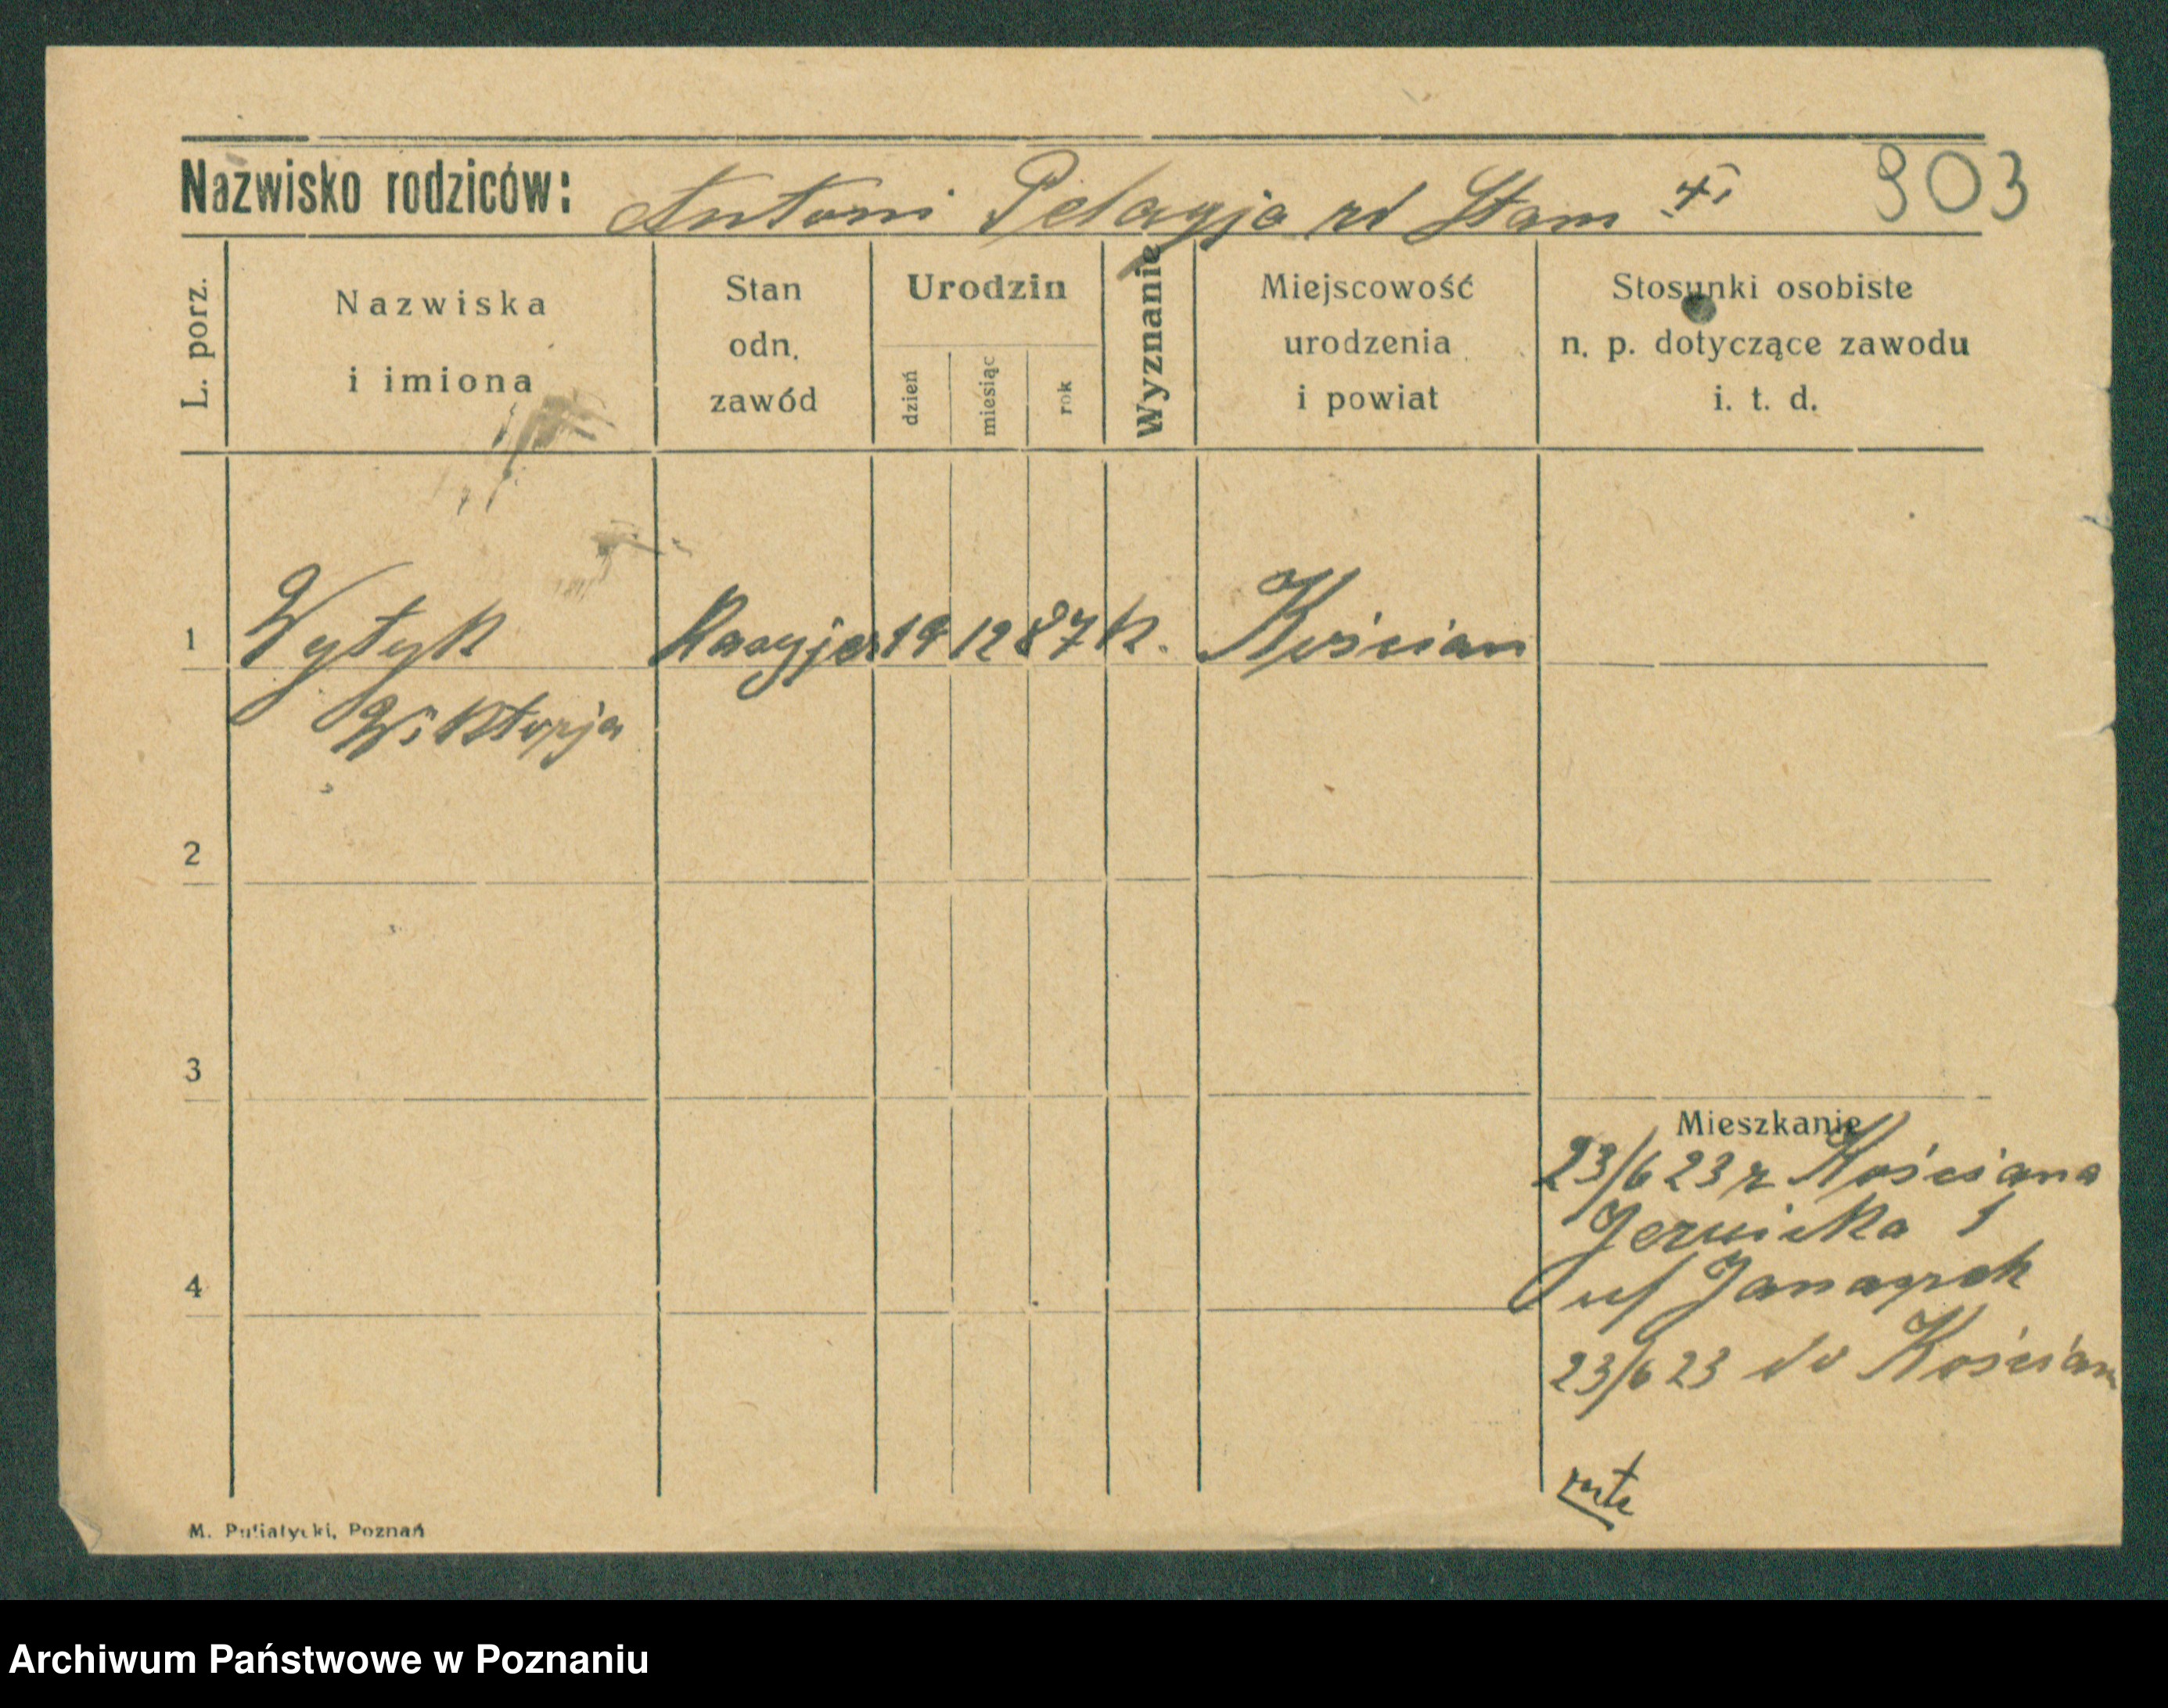 Nazwisko rodziców: Antoni Pelagja rd Stam 903
L. porz.
Nazwiska
i imiona
Stan
odn.
zawód
Urodzin
dzień
miesiąc
rok
Wyznanie
Miejscowość
urodzenia
i powiat
Stosunki osobiste
n. p. dotyczące zawodu
i. t. d.
1 Wytyk Kasyjer 19 12 87 k. Kościan
Wiktorja
2
3
Mieszkanie
23/6 23 z Kościana
1
4
23/6 23 do Kościan
M. Putiatycki, Poznań
Archiwum Państwowe w Poznaniu